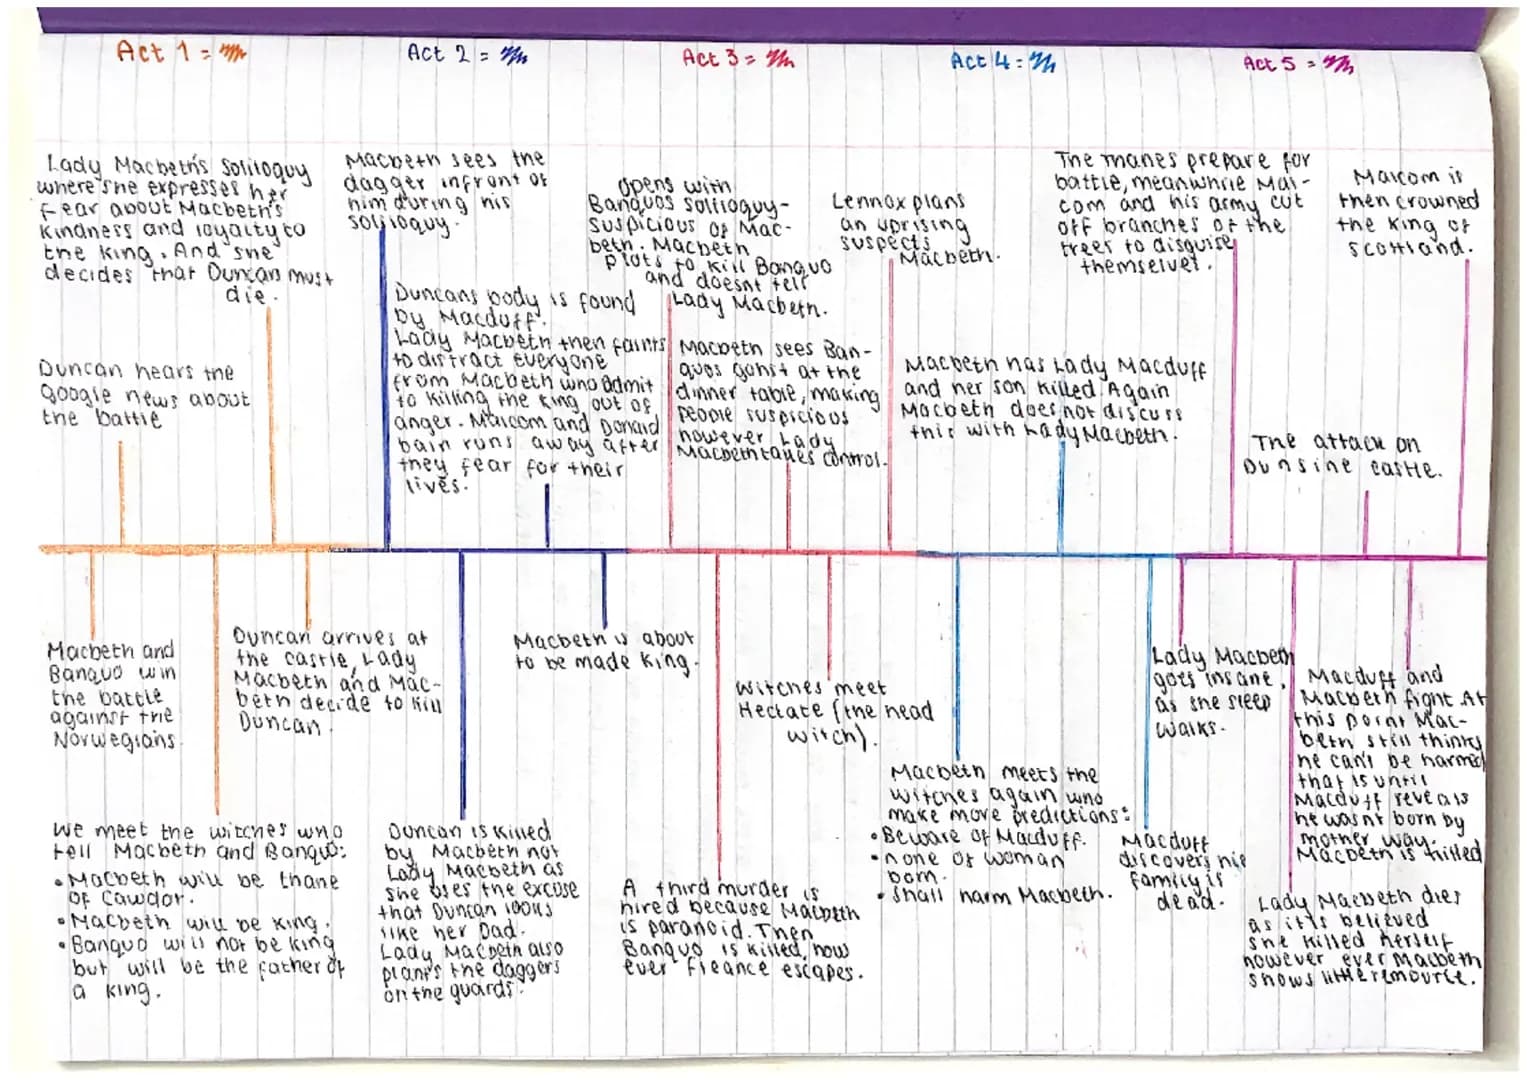 Act 1 =
Act 2 =
Act 3 =
Act 4 =
Act 5 =
Lady Macbeth's Soliloquy
where she expresses her
fear about Macbeth's
kindness and loyalty to
the king. And she
decides that Duncan must
die.
Duncan hears the
google news about
the battle
Macbeth sees the
dagger infront of
him during his
soliloquy.
Duncans body is found
by Macduff.
Lady Macbeth then faints
to distract everyone
from Macbeth who admit
to killing the king out of
anger. Malcom and Donald
bain runs away after
they fear for their
lives.
opens with
Banquos soliloquy-
suspicious of Mac-
beth. Macbeth
plots to kill Banquo
and doesnt tell
Lady Macbeth.
Macbeth sees Ban-
quos gohst at the
dinner table, making
people suspicious
however Lady
Macbeth takes control.
Lennox plans
an uprising
suspects
Macbeth.
Macbeth has Lady Macduff
and her son killed. Again
Macbeth does not discuss
this with Lady Macbeth.
The thanes prepare for
battle, meanwhile Mal-
com and his army cut
off branches of the
trees to disguise
themselves.
The attack on
Dunsine castle.
Malcom is
then crowned
the King of
Scottland.
Macbeth and
Banquo win
the battle
against the
Norwegians.
We meet the witches who
tell Macbeth and Banquo:
• Macbeth will be thane
of Cawdor.
• Macbeth will be king.
• Banquo will not be king
but will be the father of
a king.
Duncan arrives at
the castle, Lady
Macbeth and Mac-
beth decide to kill
Duncan.
Duncan is killed
by Macbeth not
Lady Macbeth as
she uses the excuse
that Duncan looks
like her Dad.
Lady Macbeth also
plants the daggers
on the guards.
Macbeth is about
to be made King.
A third murder is
hired because Macbeth
is paranoid. Then
Banquo is killed, how
ever fleance escapes.
Witches meet
Hectate (the head
witch).
Macbeth meets the
witches again who
make more predictions:
• Beware of Macduff.
• none of woman
born.
• Shall harm Macbeth.
Macduff
discovers his
family is
dead.
Lady Macbeth
goes insane,
as she sleep
walks.
Lady Macbeth dies
as it is believed
she killed herself
however ever Macbeth
shows little remource.
Macduff and
Macbeth fight. At
this point Mac-
beth still thinks
he can't be harmed
that is until
Macduff reveals
he wasnt born by
mother way.
Macbeth is killed